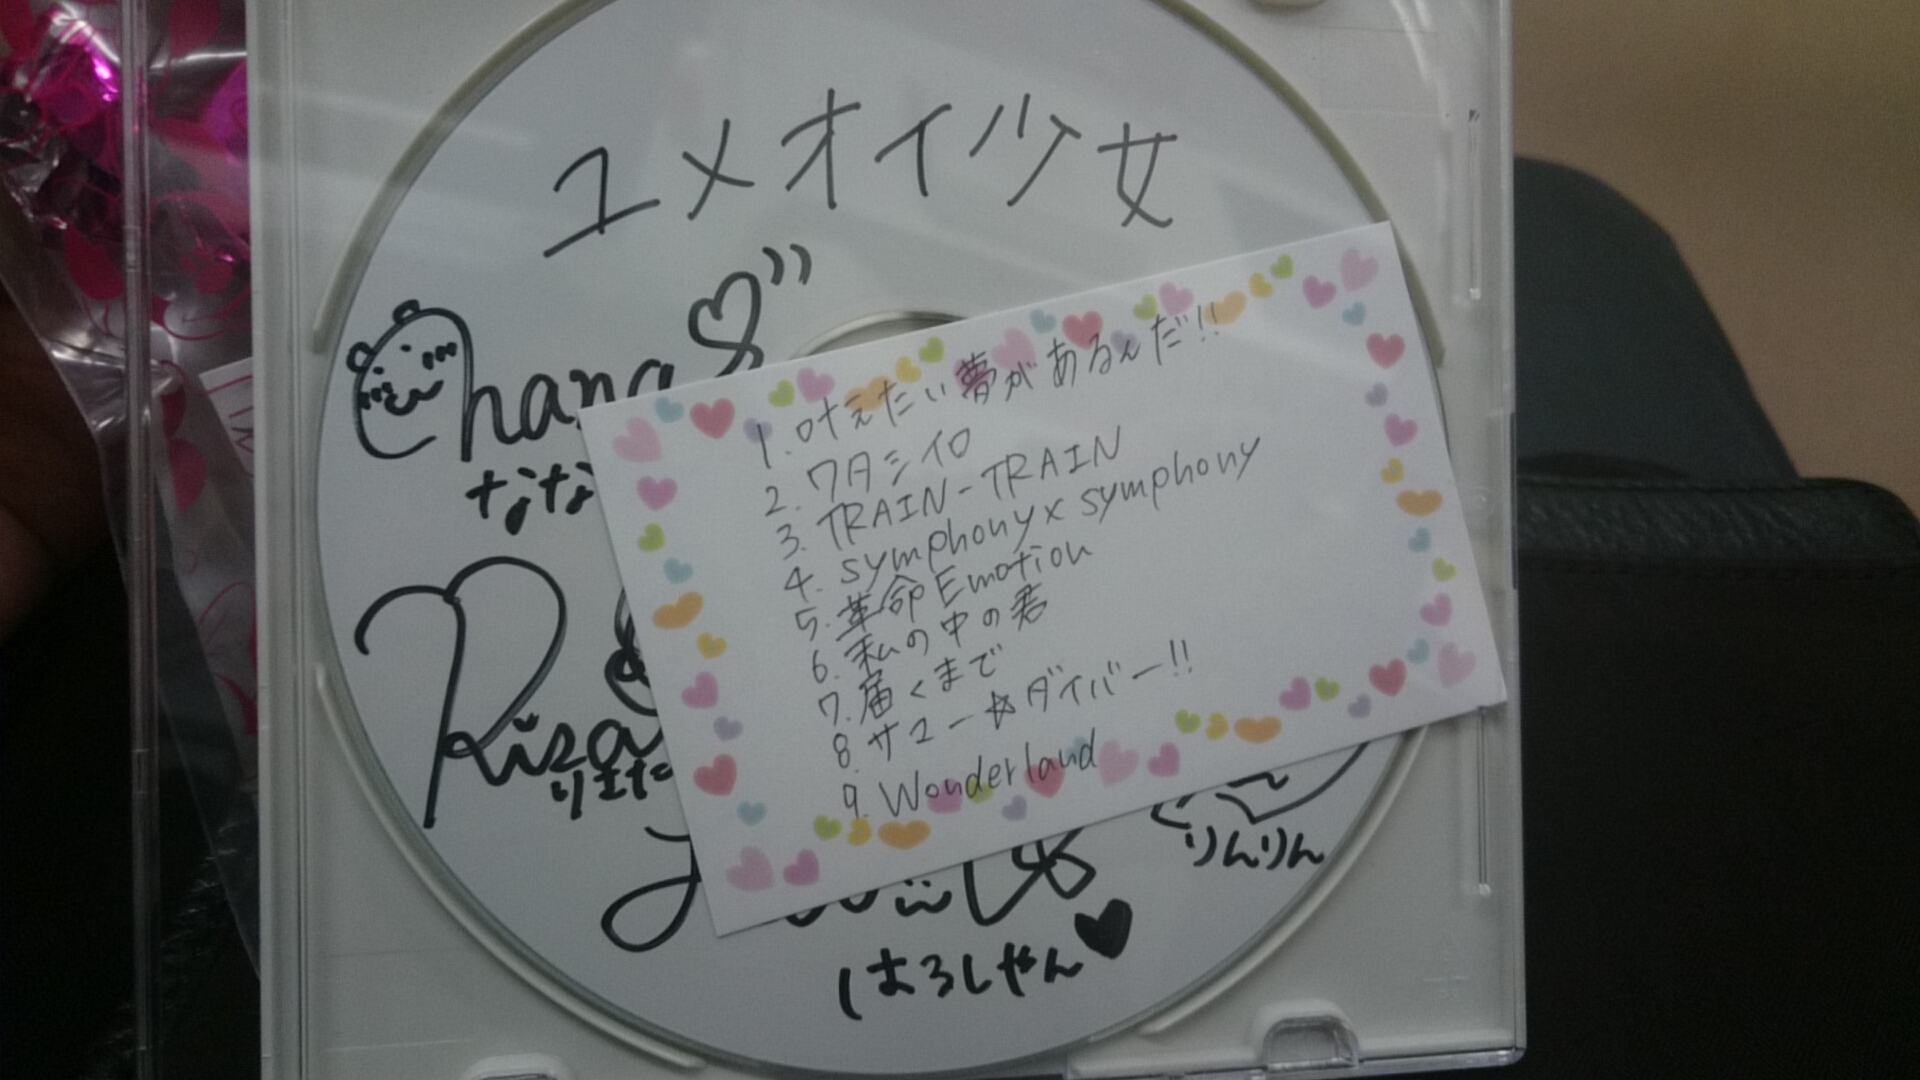 ユメオイ少女
Chana
なな
Riza
りえた
はろしゃん
りんりん
1. 叶えたい夢があるんだ!!
2. ワタシイロ
3. TRAIN-TRAIN
4. symphony x symphony
5. 革命 Emotion
6. 私の中の君
7. 届くまで
8. サユー☆ダイバー!!
9. Wonderland